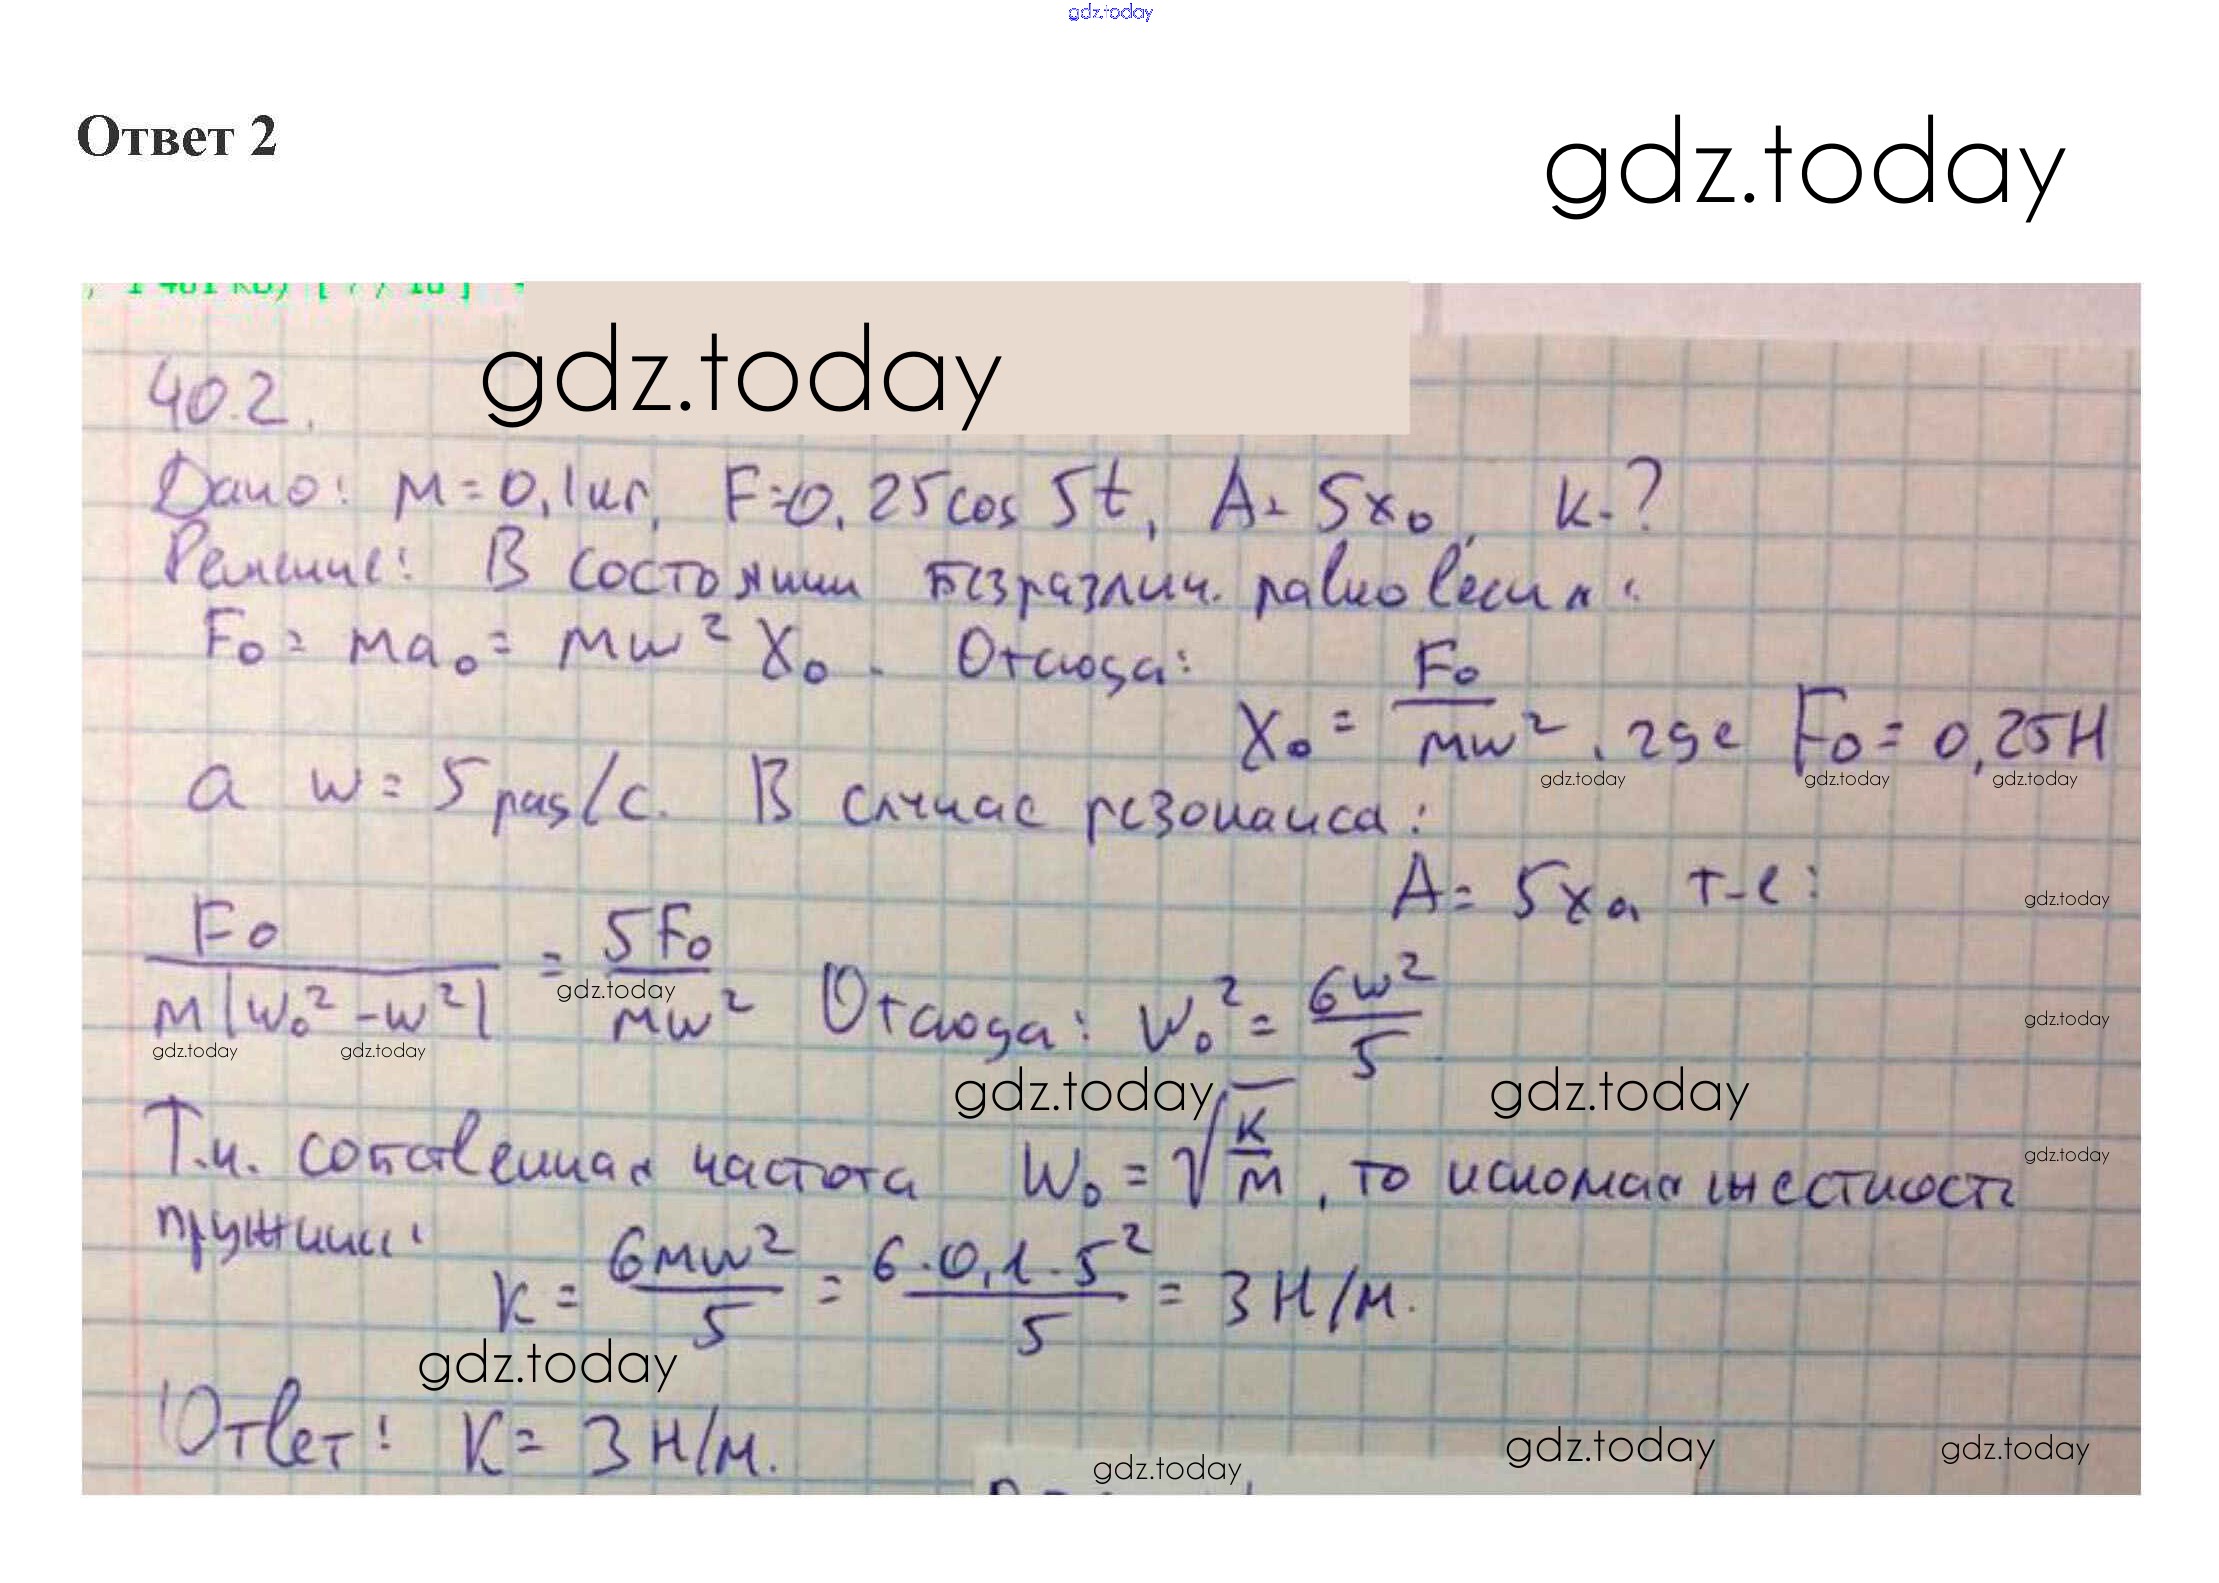 gdz.today
Ответ 2
gdz.today
gdz.today
40.2.
Дано: m = 0,1 кг, F = 0,25 cos 5t, A = 5x₀, k - ?
Решение: В состоянии безразлич. равновесия:
F₀ = ma₀ = mω² x₀. Отсюда:
x₀ = F₀/mω², где F₀ = 0,25 Н
gdz.today gdz.today gdz.today
а ω = 5 рад/с. В случае резонанса:
A = 5x₀, т-е:
gdz.today
F₀/m|ω₀² - ω²| = 5F₀/mω² Отсюда: ω₀² = 6ω²/5
gdz.today
gdz.today
gdz.today gdz.today
gdz.today gdz.today
Т.к. собственная частота ω₀ = √k/m, то искомая жесткость
gdz.today
пружины:
k = 6mω²/5 = 6·0,1·5²/5 = 3 Н/м.
gdz.today
Ответ: k = 3 Н/м.
gdz.today gdz.today gdz.today